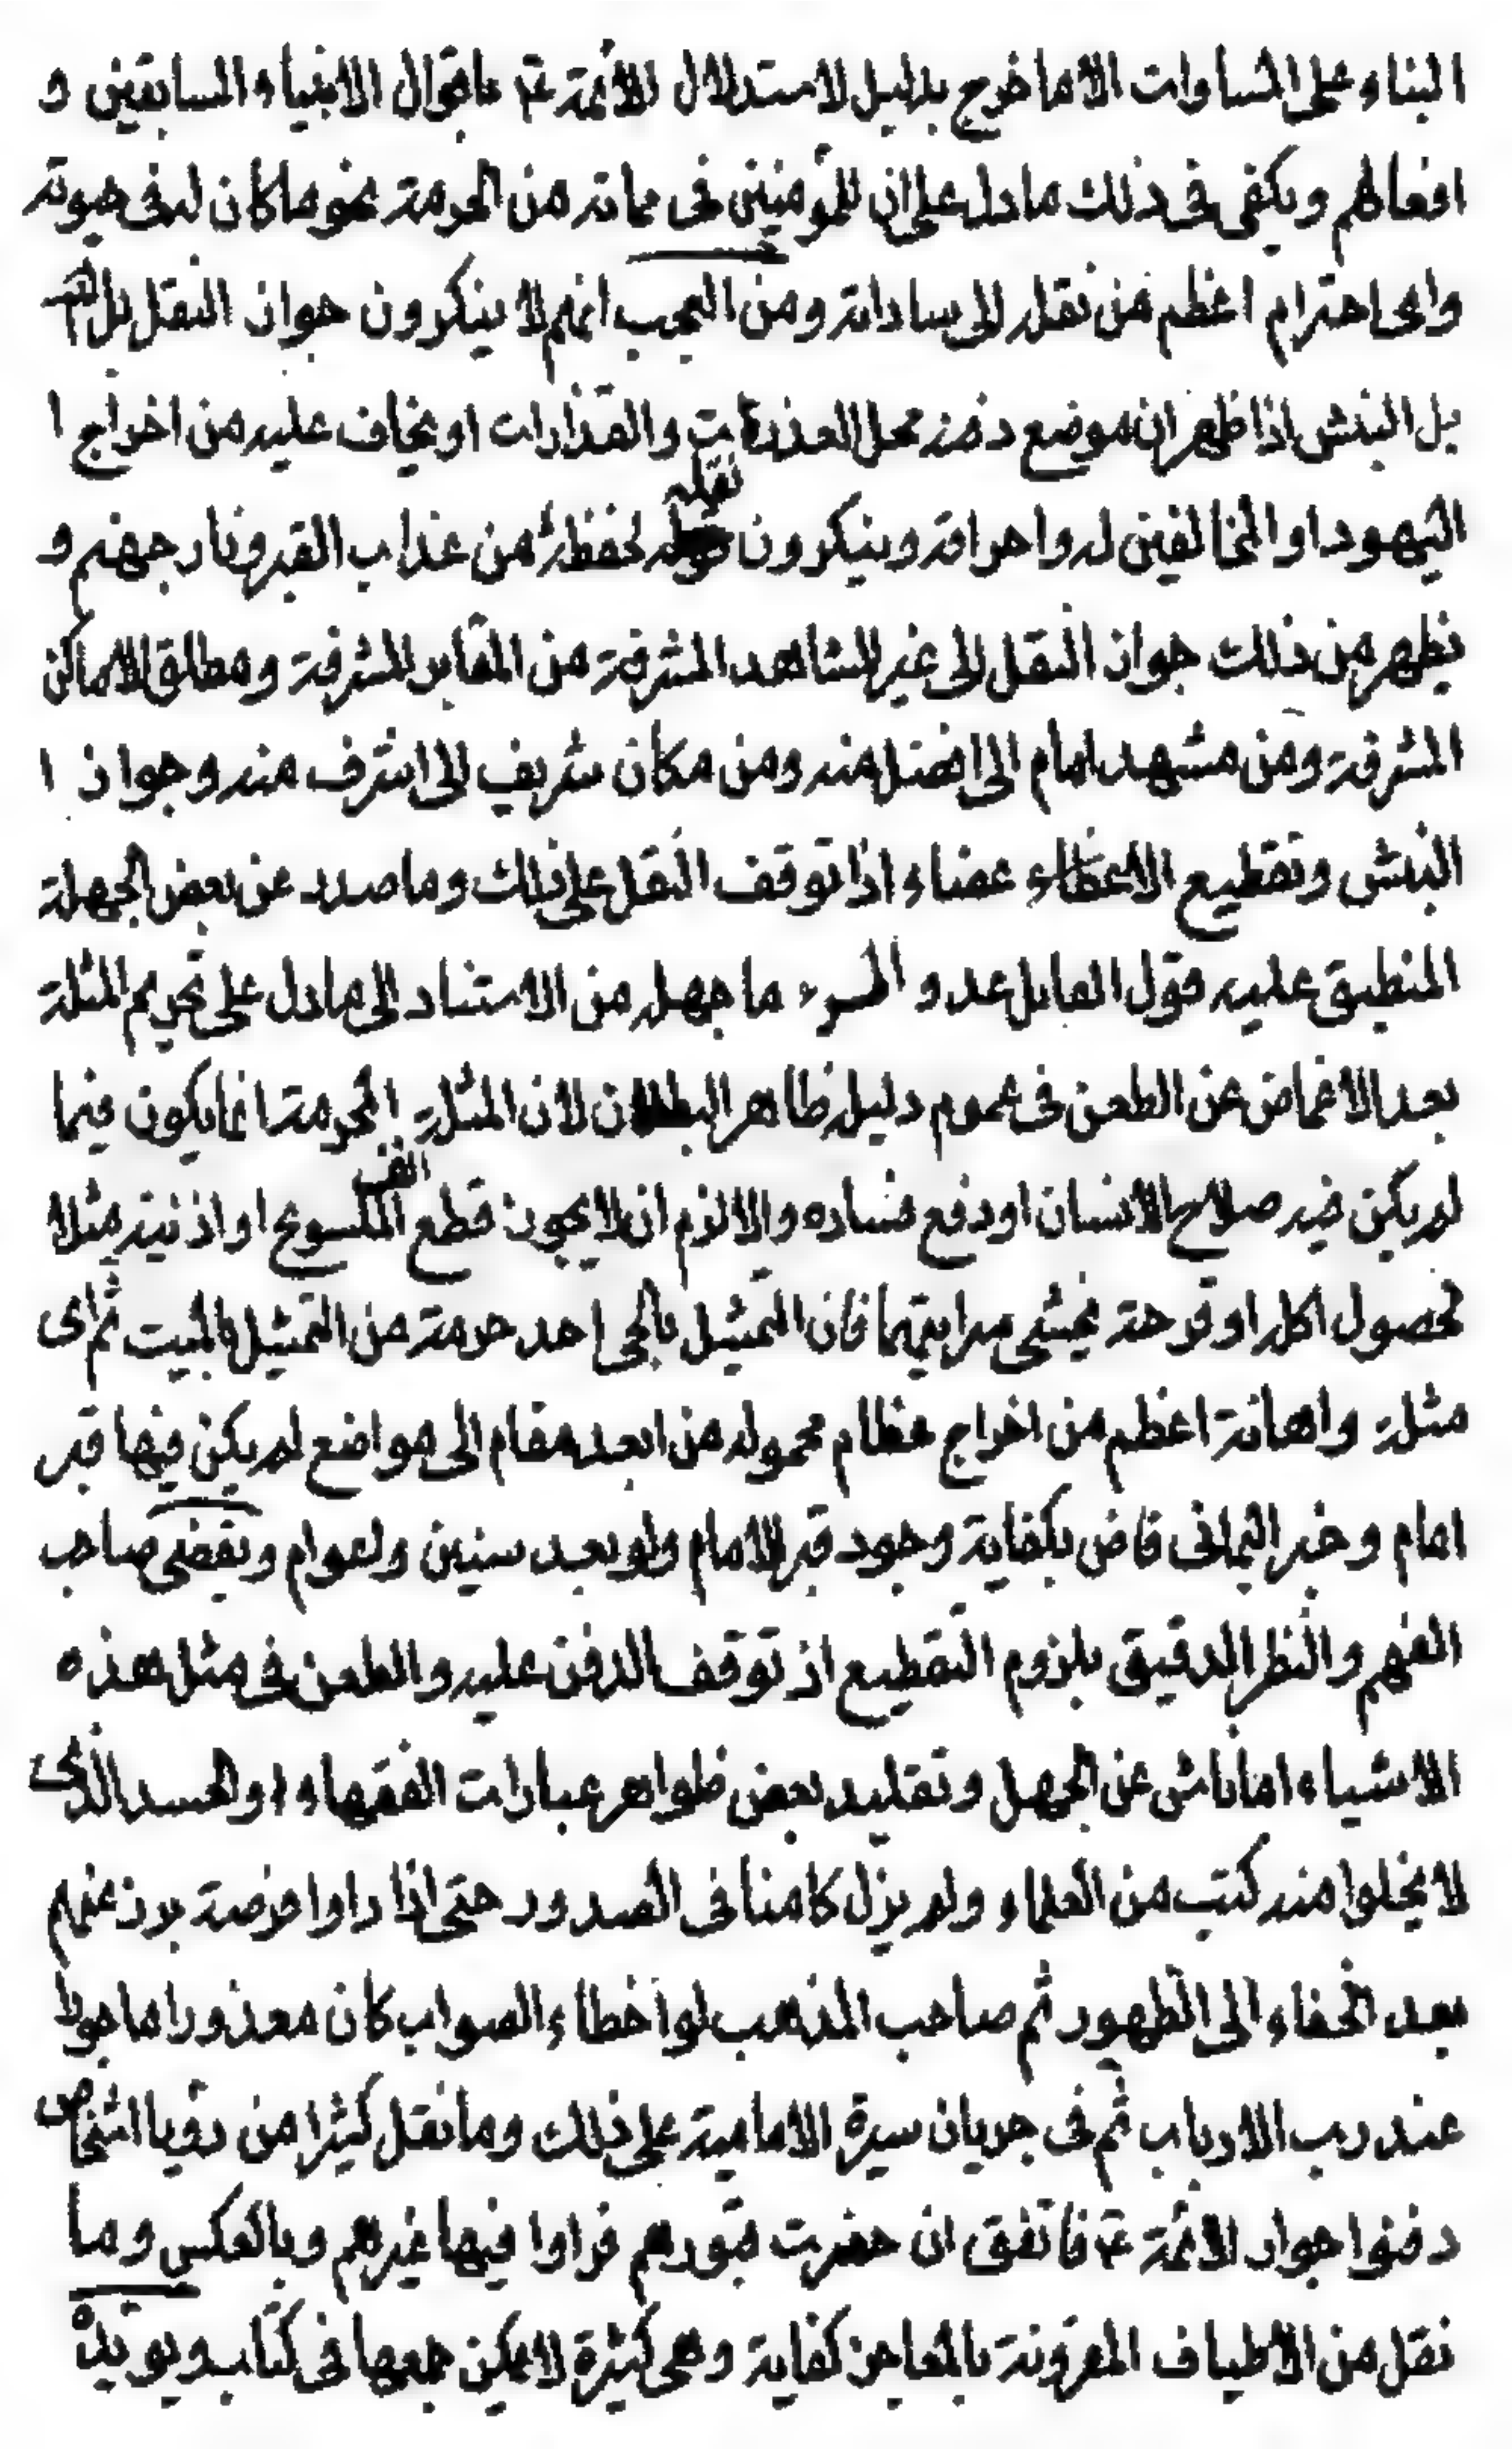 البناء على المساوات الا ما خرج بدليل لاستدلال الائمة ع باقوال الانبياء السابقين و
افعالهم ويكفى فى ذلك ما دل على ان للمؤمنين فى مماته من الحرمة نحو ما كان له فى حيوته
واى احترام اعظم من نقله الى ساداته ومن العجب انهم لا ينكرون جواز النقل بل
بل النبش اذا ظهر ان موضع دفنه محل العذرات والقذارات او يخاف عليه من اخراج ا
اليهود او المخالفين له واحراقه وينكرون نقله لحفظه من عذاب القبر ونار جهنم و
يظهر من ذلك جواز النقل الى غير المشاهد المشرفة من المقابر المشرفة ومطلق الاماكن
المشرفة ومن مشهد امام الى افضل منه ومن مكان شريف الى اشرف منه وجواز ا
النبش وتقطيع الاعضاء عضاء اذا توقف النقل على ذلك وما صدر عن بعض الجهلة
المنطبق عليه قول القايل عدو المرء ما جهله من الاستناد الى ما دل على تحريم المثلة
بعد الاغماض عن الطعن فى عموم دليله ظاهر البطلان لان المثلة المحرمة انما يكون فيما
لم يكن فيه صلاح الانسان او دفع فساده والا لزم ان لا يجوز قطع انف الملسوع او اذنيه مثلا
لحصول اكله او قرحة يخشى سرايتها فان التمثيل بالحى احد حرمة من التمثيل بالميت ثم اى
مثلة واهانة اعظم من اخراج عظام محموله من ابعد مقام الى مواضع لم يكن فيها قبر
امام وخبر اليمانى قاض بكفاية وجود قبر الامام ولو بعد سنين واعوام ويقضى صاحب
الفهم والنظر الدقيق بلزوم التقطيع اذ توقف الدفن عليه والطعن فى مثل هذه
الاشياء اما ناش عن الجهل وتقليد بعض ظواهر عبارات الفقهاء او الحسد الذى
لا يخلوا منه كتب من العلماء ولم يزل كامنا فى الصدور حتى اذا راوا فرصة برز عنهم
بعد الخفاء الى الظهور ثم صاحب المذهب لو اخطاء الصواب كان معذورا ماجورا
عند رب الارباب ثم فى جريان سيرة الامامية على ذلك وما نقل كثيرا من رؤيا اشخاص
دفنوا جوار الائمة ع فاتفق ان حضرت قبورهم فراوا فيها غيرهم وبالعكس وما
نقل من الاطياف المقرونة بالمعاجز كفاية وهى كثيرة لا يمكن جمعها فى كتاب ويؤيده